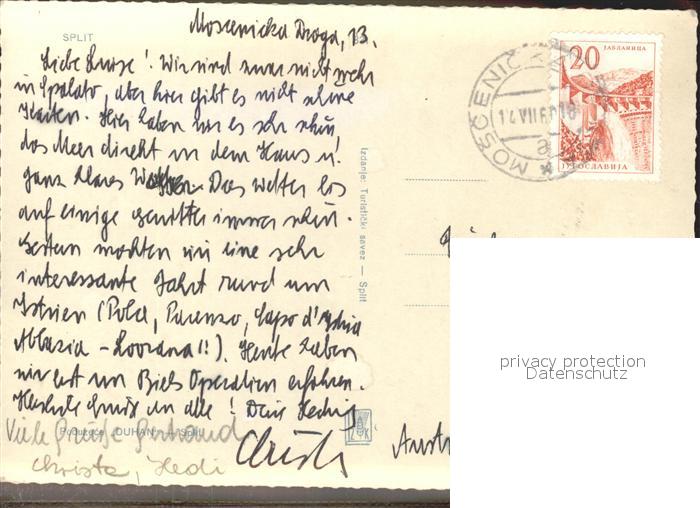 SPLIT
Moscenicka Draga, 13.
Liebe Luise! Wir sind zwar nicht mehr
in Spalato, aber hier gibt es nicht schöne
Karten. Hier haben wir es sehr schön,
das Meer direkt vor dem Haus u.
ganz klares Wasser. Das Wetter bis
auf einige Gewitter immer schön.
Gestern machten wir eine sehr
interessante Fahrt rund um
Istrien (Pola, Parenzo, Capo d'Istria
Abbazia - Lovrana!!). Heute haben
wir erst von Operation erfahren.
Herzliche Grüße an alle! Dein Hedwig
Viele Grüße Gertraud
Christa, Hedi
Christl
Izdanje: Turistički savez — Split
DUHAN — Split
20
ЈАБЛАНИЦА
ЈУГОСЛАВИЈА
MOŠĆENIČKA
14 VII 9
a
Austr
privacy protection
Datenschutz